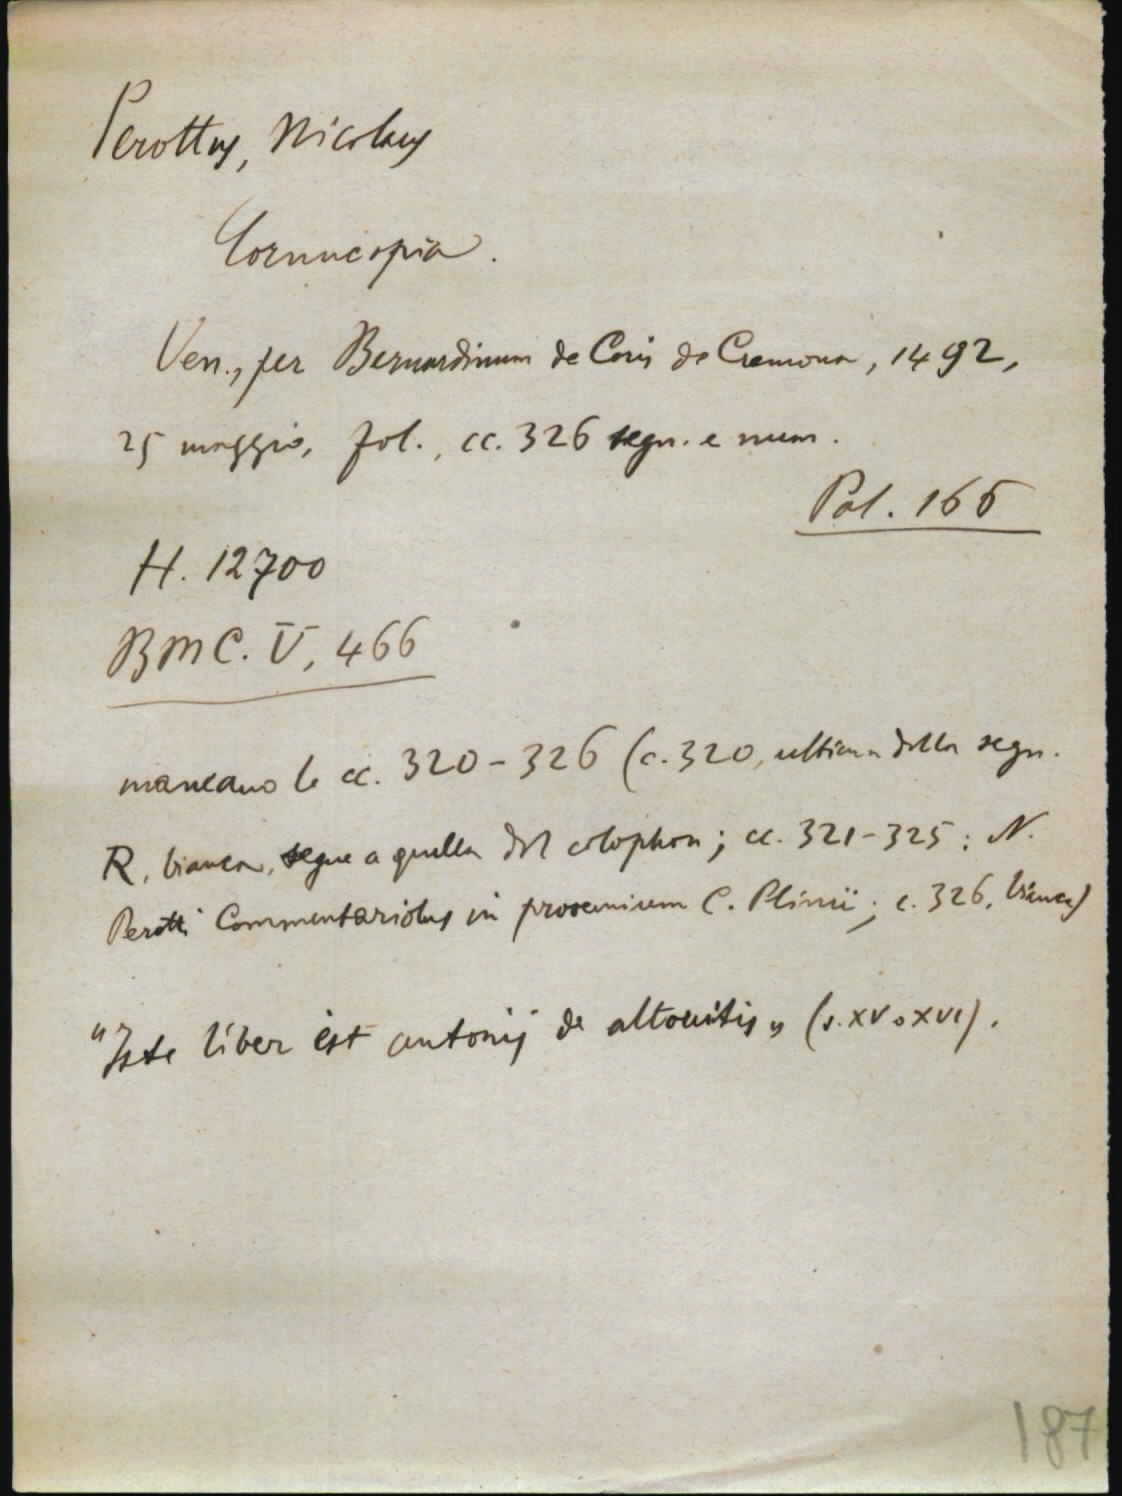 Perottus, Nicolaus
Cornucopia.
Ven., per Bernardinum de Coris de Cremona, 1492,
25 maggio, fol., cc. 326 segn. e num.
Pal. 166
H. 12700
BMC. V, 466
mancano le cc. 320-326 (c. 320, ultima della segn.
R, bianca, segue a quella del colophon; cc. 321-325: N.
Perotti Commentariolus in prooemium C. Plinii; c. 326, bianca)
"Iste liber est antonij de altovitis" (s. XV o XVI).
187